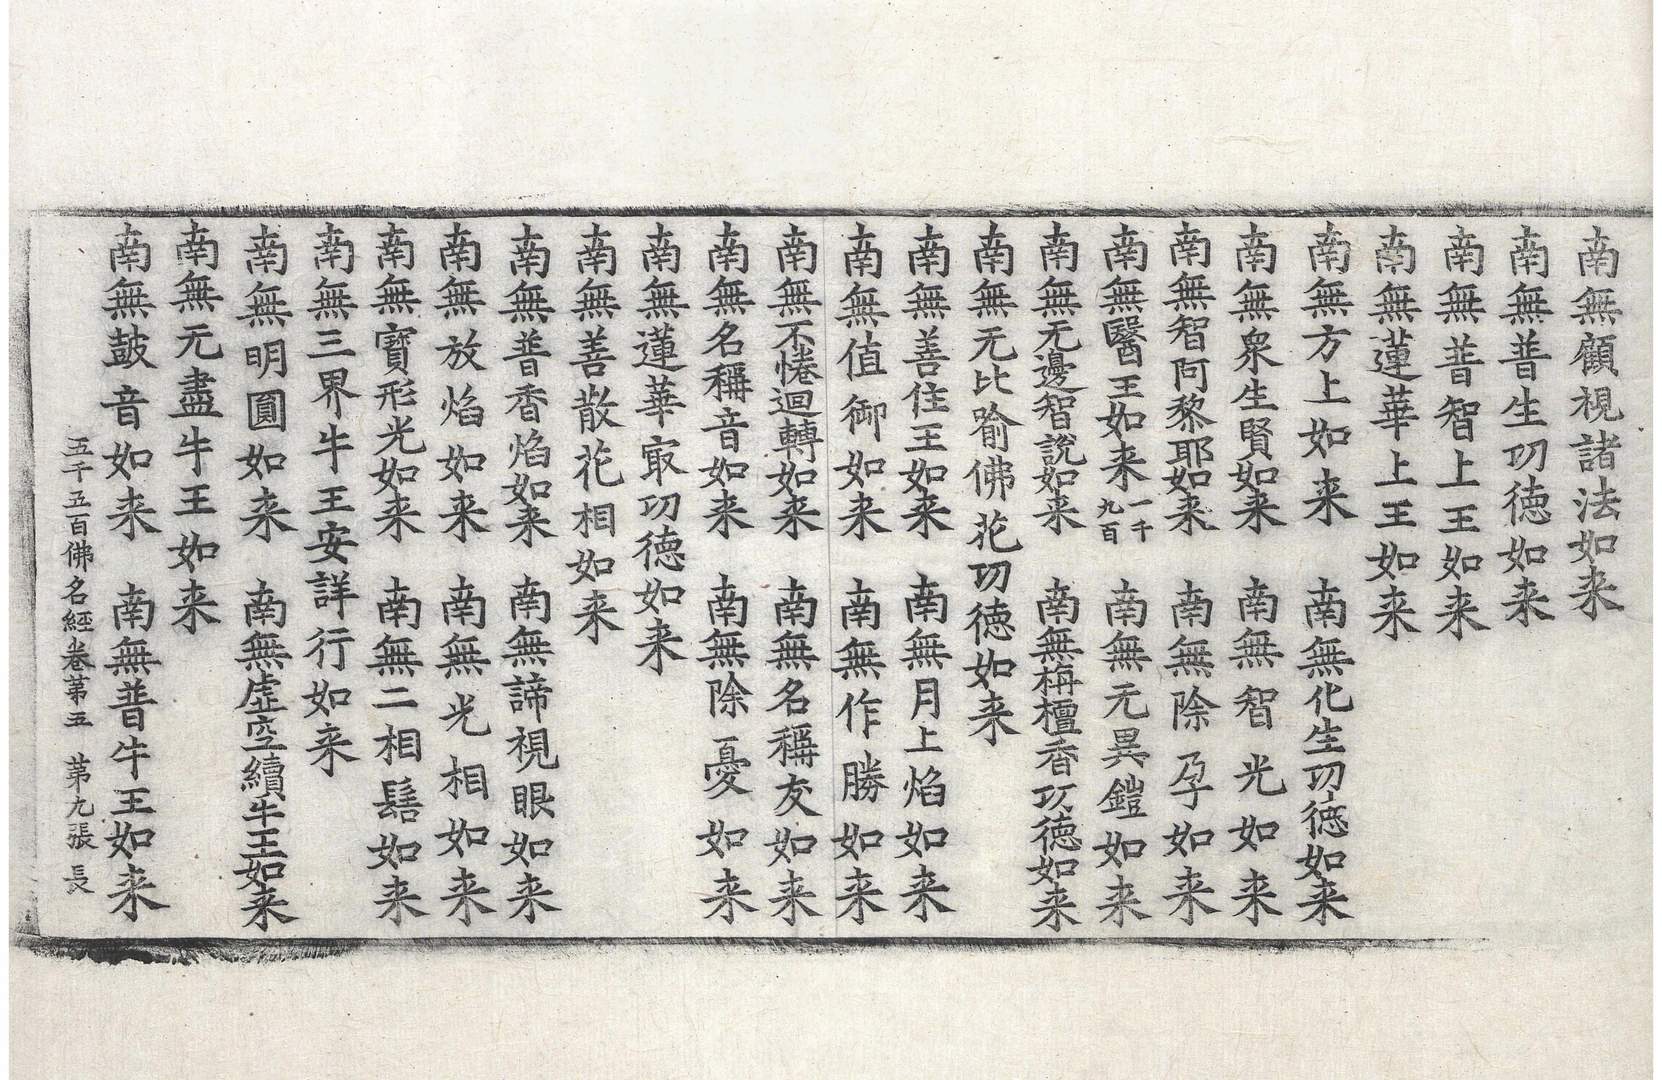 南無顧視諸法如来
南無普生功德如来
南無普智上王如来
南無蓮華上王如来
南無方上如来　南無化生功德如来
南無衆生賢如来　南無智光如来
南無智阿黎耶如来　南無除孕如来
南無醫王如来一千九百　南無无異鎧如来
南無无邊智說如来　南無栴檀香功德如来
南無无比喻佛花功德如来
南無善住王如来　南無月上焰如来
南無值御如来　南無作勝如来
南無不惓迴轉如来　南無名稱友如来
南無名稱音如来　南無除憂如来
南無蓮華㝡功德如来
南無善散花相如来
南無普香焰如来　南無諦視眼如来
南無放焰如来　南無光相如来
南無寶形光如来　南無二相髻如来
南無三界牛王安詳行如来
南無明圓如来　南無虛空續牛王如来
南無无盡牛王如来
南無鼓音如来　南無普牛王如来
五千五百佛名經卷第五　第九張　長